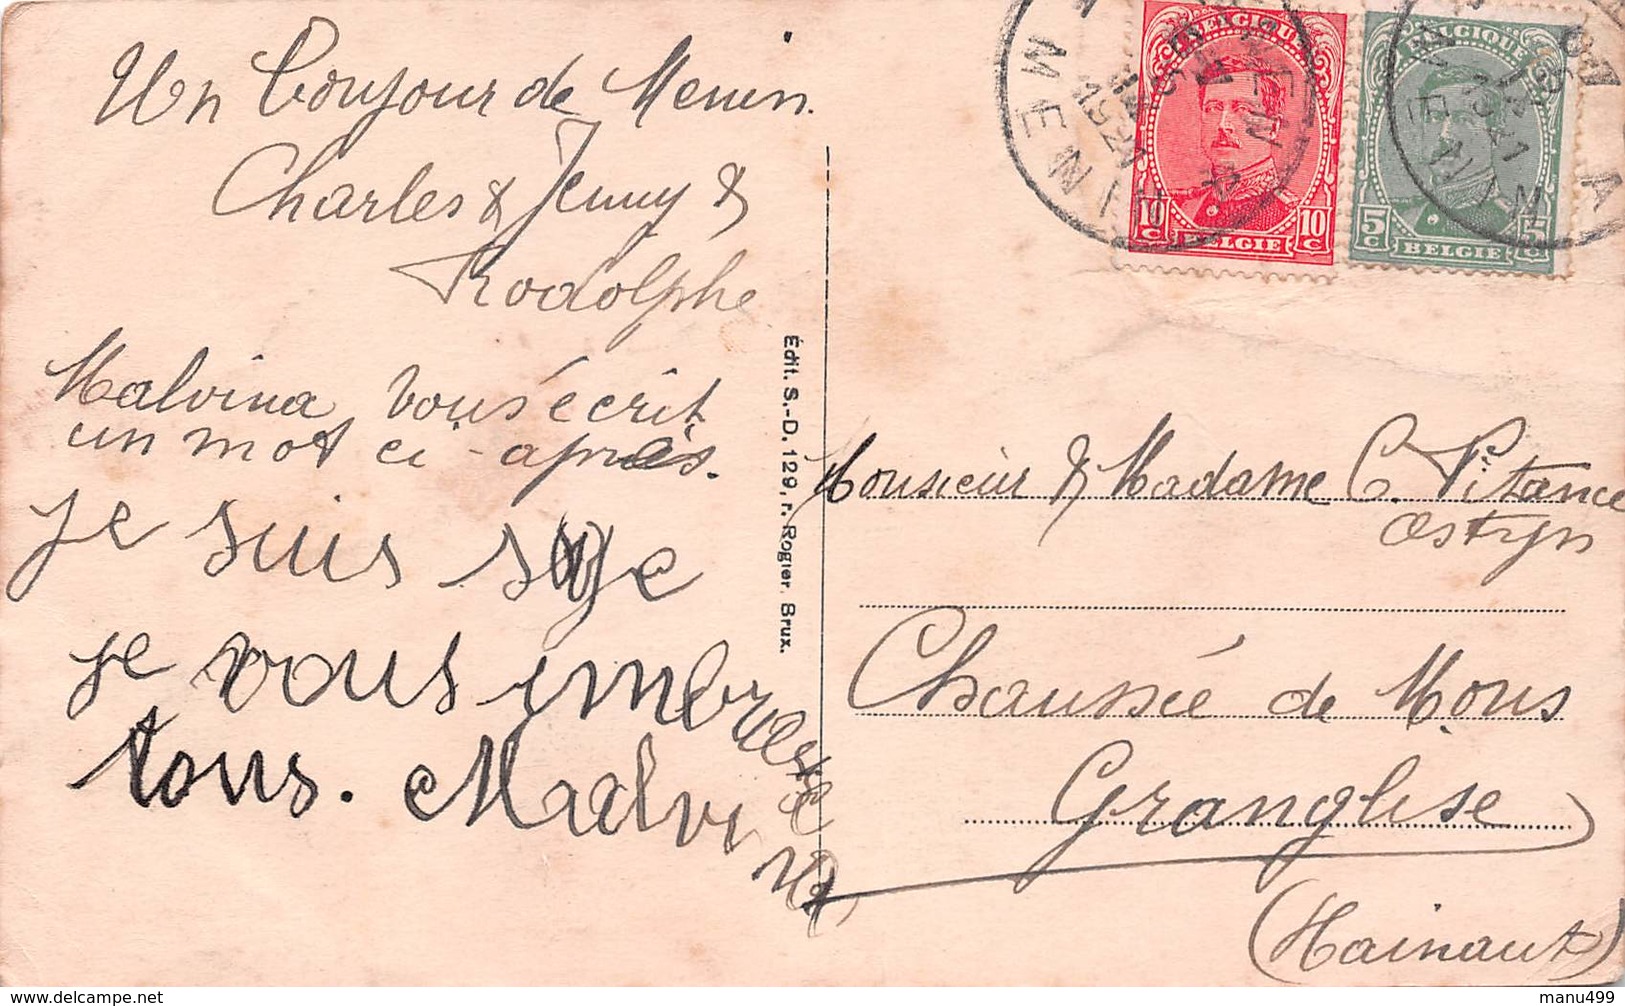 Un Bonjour de Menin.
Charles & Jenny &
Rodolphe
Malvina vous écrit
un mot ci-après.
je suis sage
je vous embrasse
tous. Malvina
Édit. S.-D. 129, r. Rogier, Brux.
BELGIQUE
10c 10c
BELGIE
BELGIQUE
5c 5c
BELGIE
MENIN
1921
MEENEN
MENIN
1921
Monsieur & Madame C. Pitance
Ostyn
Chaussée de Mons
Granglise
(Hainaut)
manu499